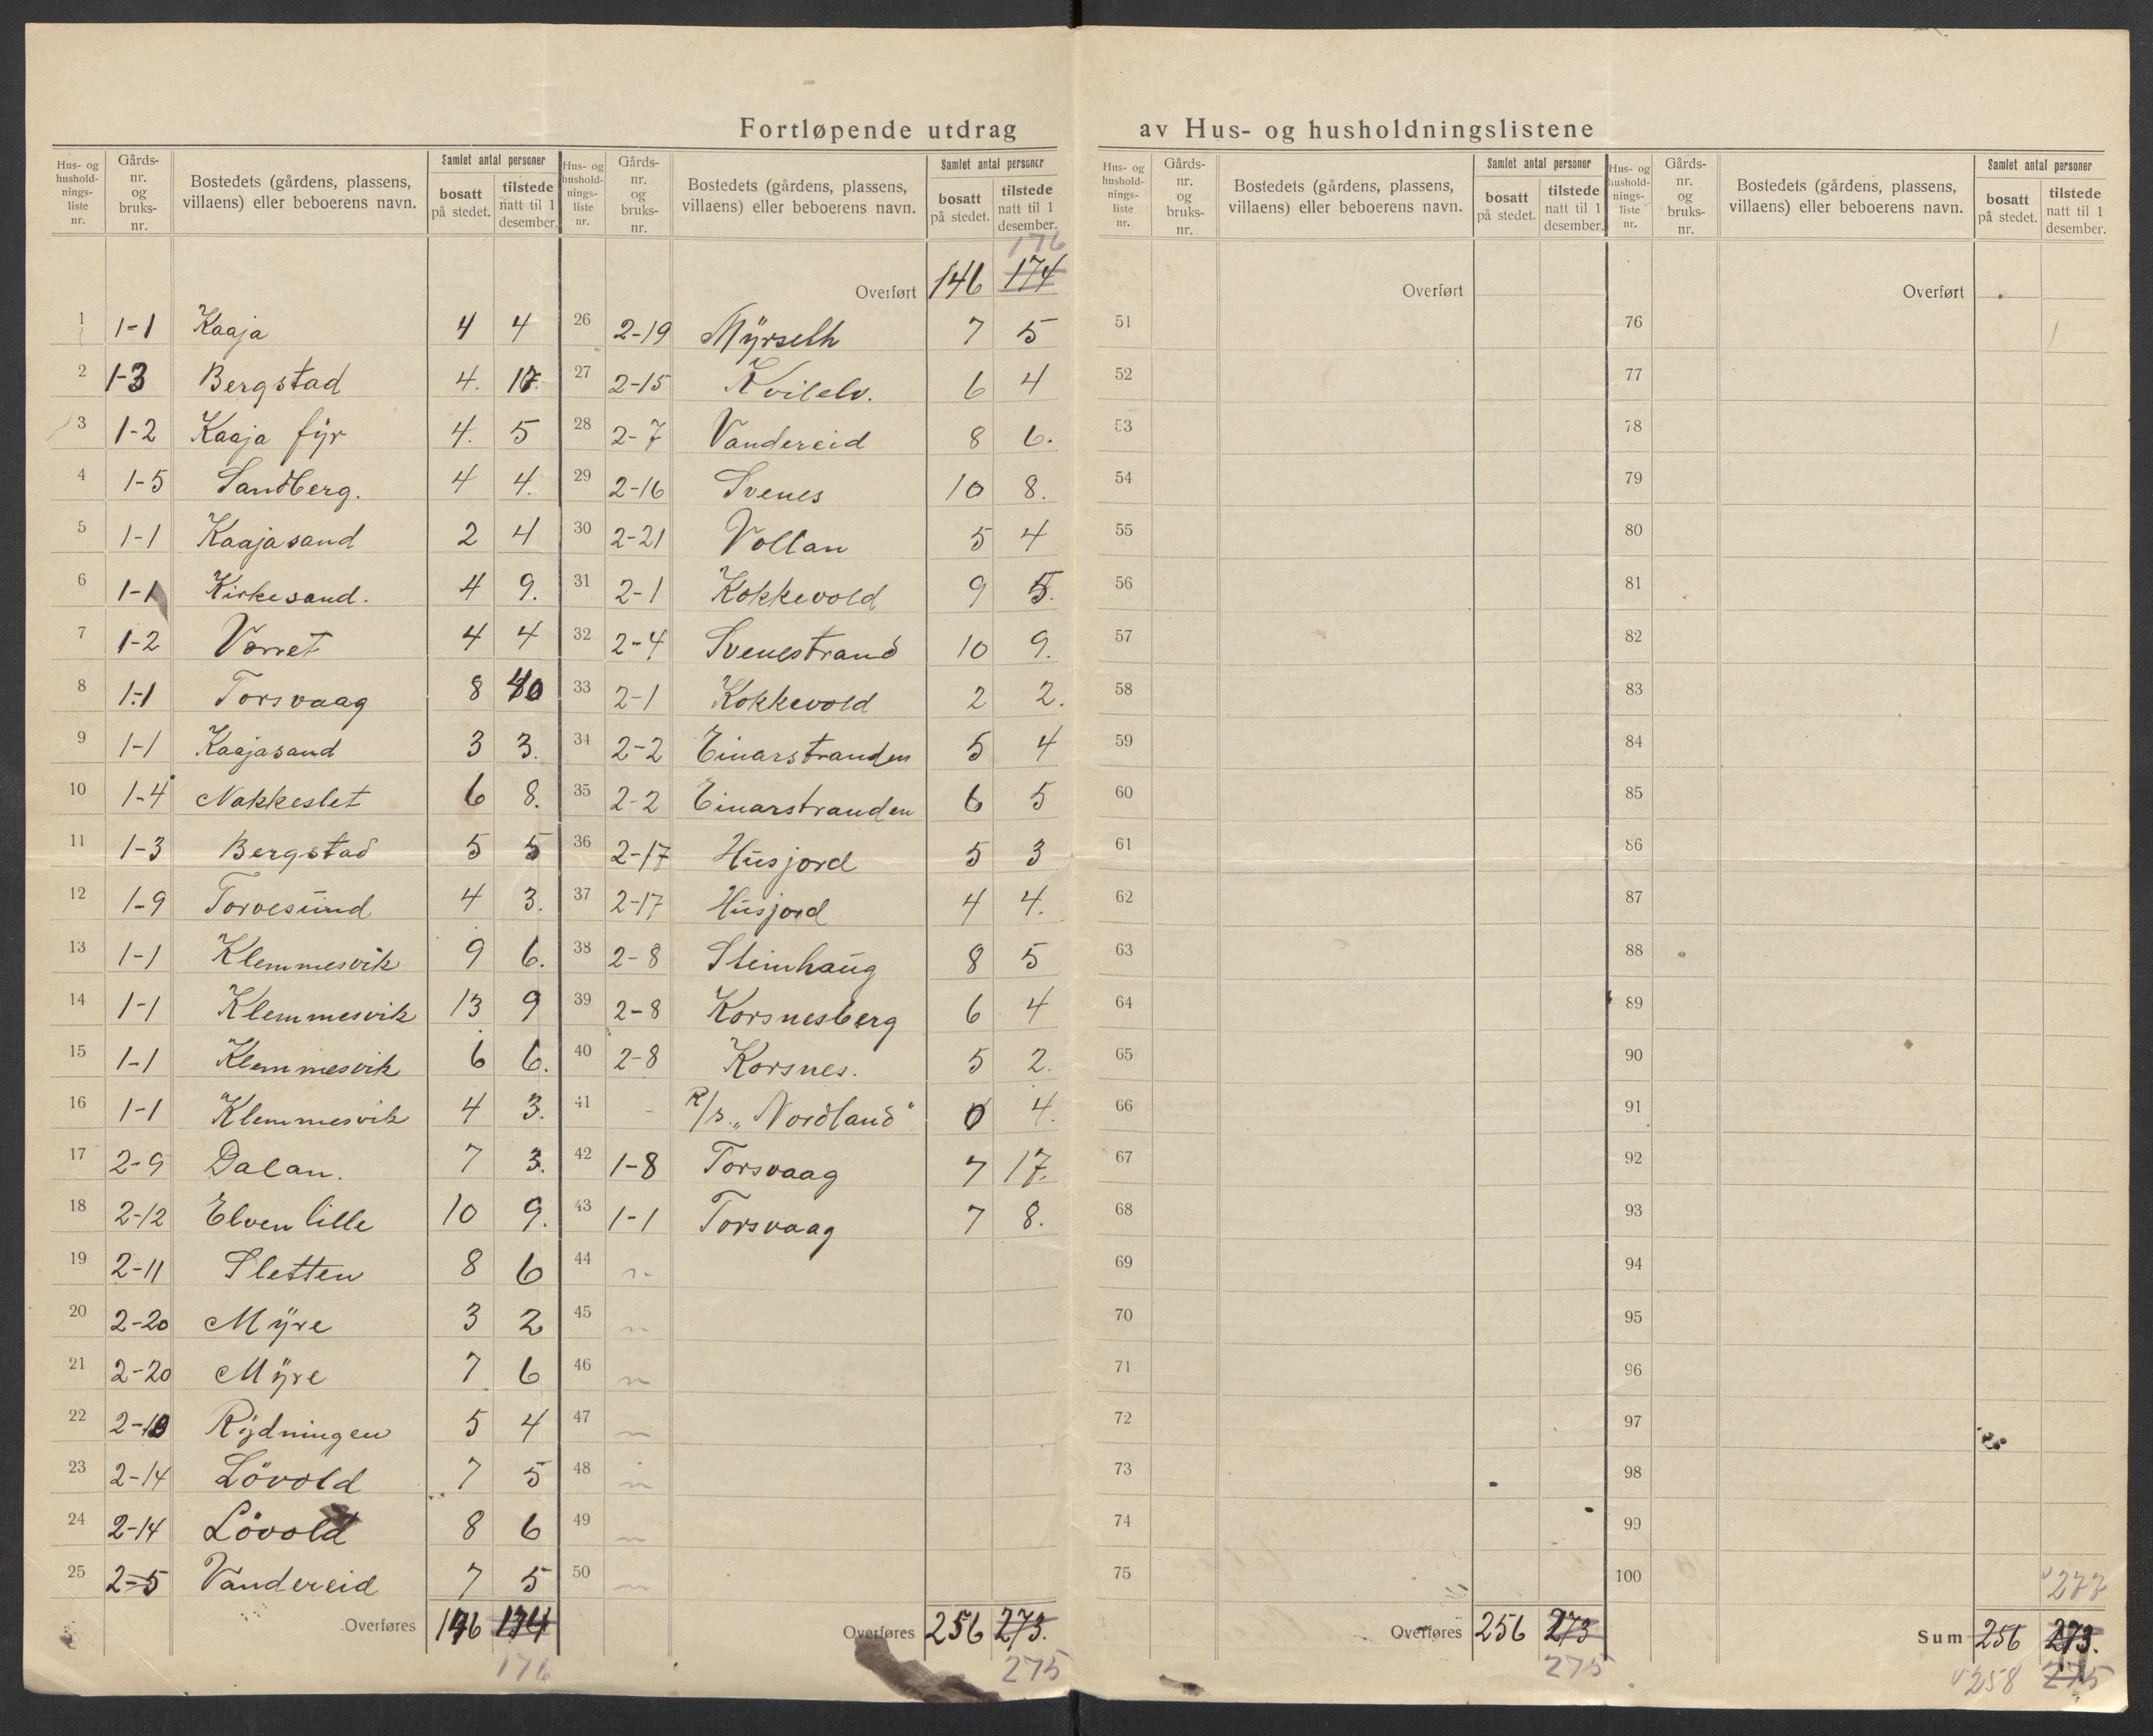 Fortløpende utdrag av Hus- og husholdningslistene
Hus- og hushold- nings- liste nr. Gårds- nr. og bruks- nr. Bostedets (gårdens, plassens, villaens) eller beboerens navn. Samlet antal personer bosatt på stedet. tilstede natt til 1 desember.
1 1-1 Kaaja 4 4
2 1-3 Bergstad 4. 17.
3 1-2 Kaaja fÿr 4. 5
4 1-5 Sandberg. 4 4.
5 1-1 Kaajasand 2 4
6 1-1 Kirkesand. 4 9.
7 1-2 Værret 4 4
8 1-1 Torsvaag 8 40
9 1-1 Kaajasand 3 3.
10 1-4 Nakkeslet 6 8.
11 1-3 Bergstad 5 5
12 1-9 Torvesund 4 3.
13 1-1 Klemmesvik 9 6.
14 1-1 Klemmesvik 13 9
15 1-1 Klemmesvik 6 6.
16 1-1 Klemmesvik 4 3.
17 2-9 Dalan. 7 3.
18 2-12 Elven lille 10 9.
19 2-11 Sletten 8 6
20 2-20 Mÿre 3 2
21 2-20 Mÿre 7 6
22 2-10 Rÿdningen 5 4
23 2-14 Lövold 7 5
24 2-14 Lövold 8 6
25 2-5 Vandereid 7 5
Overføres 146 174
176
Hus- og hushold- nings- liste nr. Gårds- nr. og bruks- nr. Bostedets (gårdens, plassens, villaens) eller beboerens navn. Samlet antal personer bosatt på stedet. tilstede natt til 1 desember.
176
Overført 146 174
26 2-19 Mÿrseth 7 5
27 2-15 Kvilelv. 6 4
28 2-7 Vandereid 8 6.
29 2-16 Svenes 10 8.
30 2-21 Vollan 5 4
31 2-1 Kokkevold 9 5.
32 2-4 Svenestrand 10 9.
33 2-1 Kokkevold 2 2.
34 2-2 Einarstranden 5 4
35 2-2 Einarstranden 6 5
36 2-17 Husjord 5 3
37 2-17 Husjord 4 4.
38 2-8 Steinhaug 8 5
39 2-8 Korsnesberg 6 4
40 2-8 Korsnes. 5 2.
41 - R/s. „Nordland" 0 4.
42 1-8 Torsvaag 7 17.
43 1-1 Torsvaag 7 8.
44
45
46
47
48
49
50
Overføres 256 273.
275
Hus- og hushold- nings- liste nr. Gårds- nr. og bruks- nr. Bostedets (gårdens, plassens, villaens) eller beboerens navn. Samlet antal personer bosatt på stedet. tilstede natt til 1 desember.
Overført
51
52
53
54
55
56
57
58
59
60
61
62
63
64
65
66
67
68
69
70
71
72
73
74
75
Overføres 256 273
275
Hus- og hushold- nings- liste nr. Gårds- nr. og bruks- nr. Bostedets (gårdens, plassens, villaens) eller beboerens navn. Samlet antal personer bosatt på stedet. tilstede natt til 1 desember.
Overført
76
77
78
79
80
81
82
83
84
85
86
87
88
89
90
91
92
93
94
95
96
97
98
99
100
277
Sum 256 273.
258 275